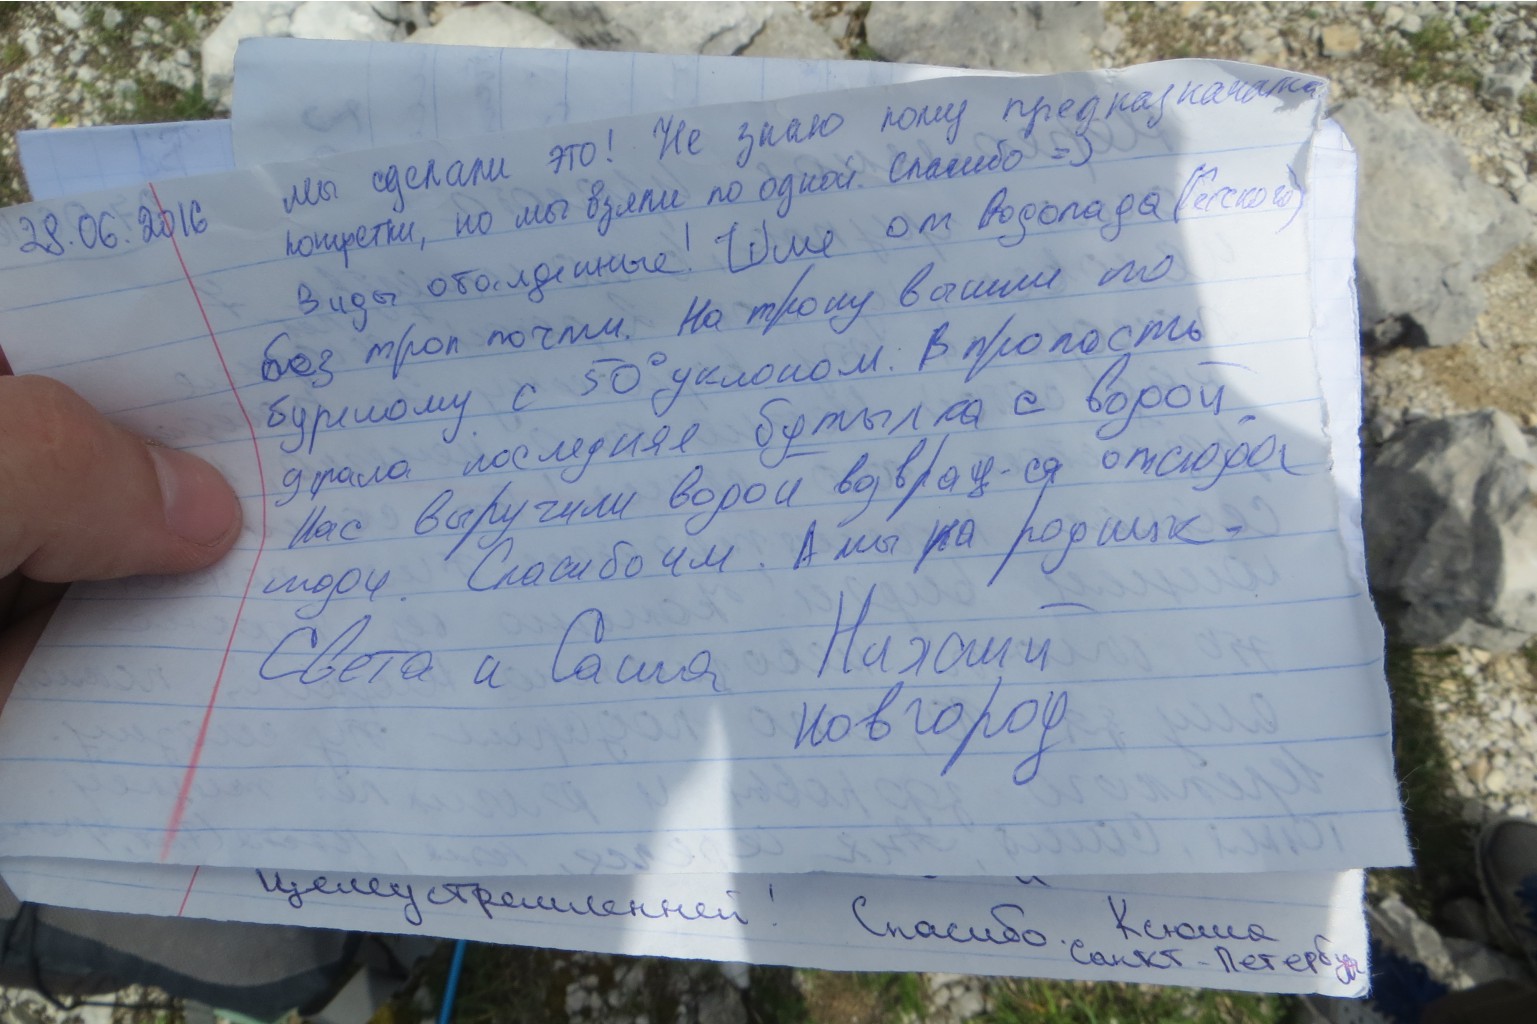 28.06.2016
Мы сделали это! Не знаю кому предназначами
конфетки, но мы взяли по одной. Спасибо =)
Виды обалденные! Шли от водопада (Гегского)
без троп почти. На тропу вышли по
бурелому с 50° уклоном. В пропасть
упала последняя бутылка с водой
Нас выручили водой возвращ-ся отсюда
люди. Спасибо им. А мы на родник -
Света и Саша Нижний
Новгород
целеустремленней! Спасибо. Ксюша
Санкт-Петербург